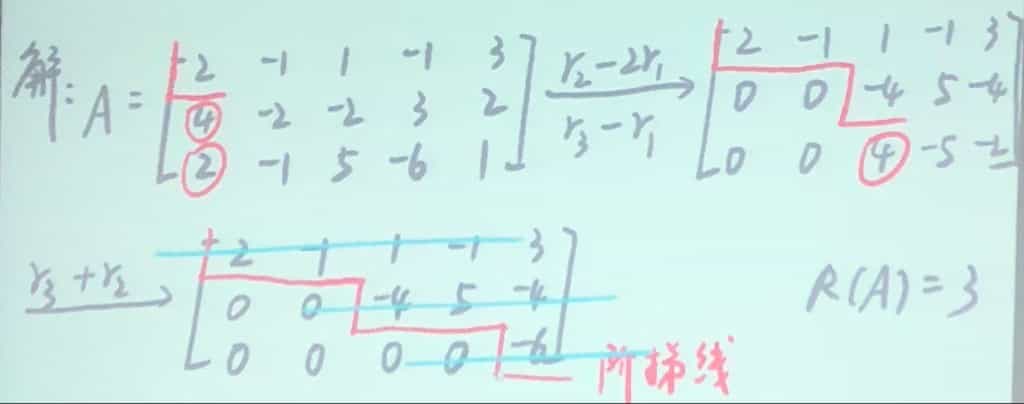 解: A = [2 -1 1 -1 3
4 -2 -2 3 2
2 -1 5 -6 1]
r₂-2r₁
r₃-r₁
[2 -1 1 -1 3
0 0 -4 5 -4
0 0 4 -5 -2]
r₃+r₂
[2 -1 1 -1 3
0 0 -4 5 -4
0 0 0 0 -6]
阶梯线
R(A)=3